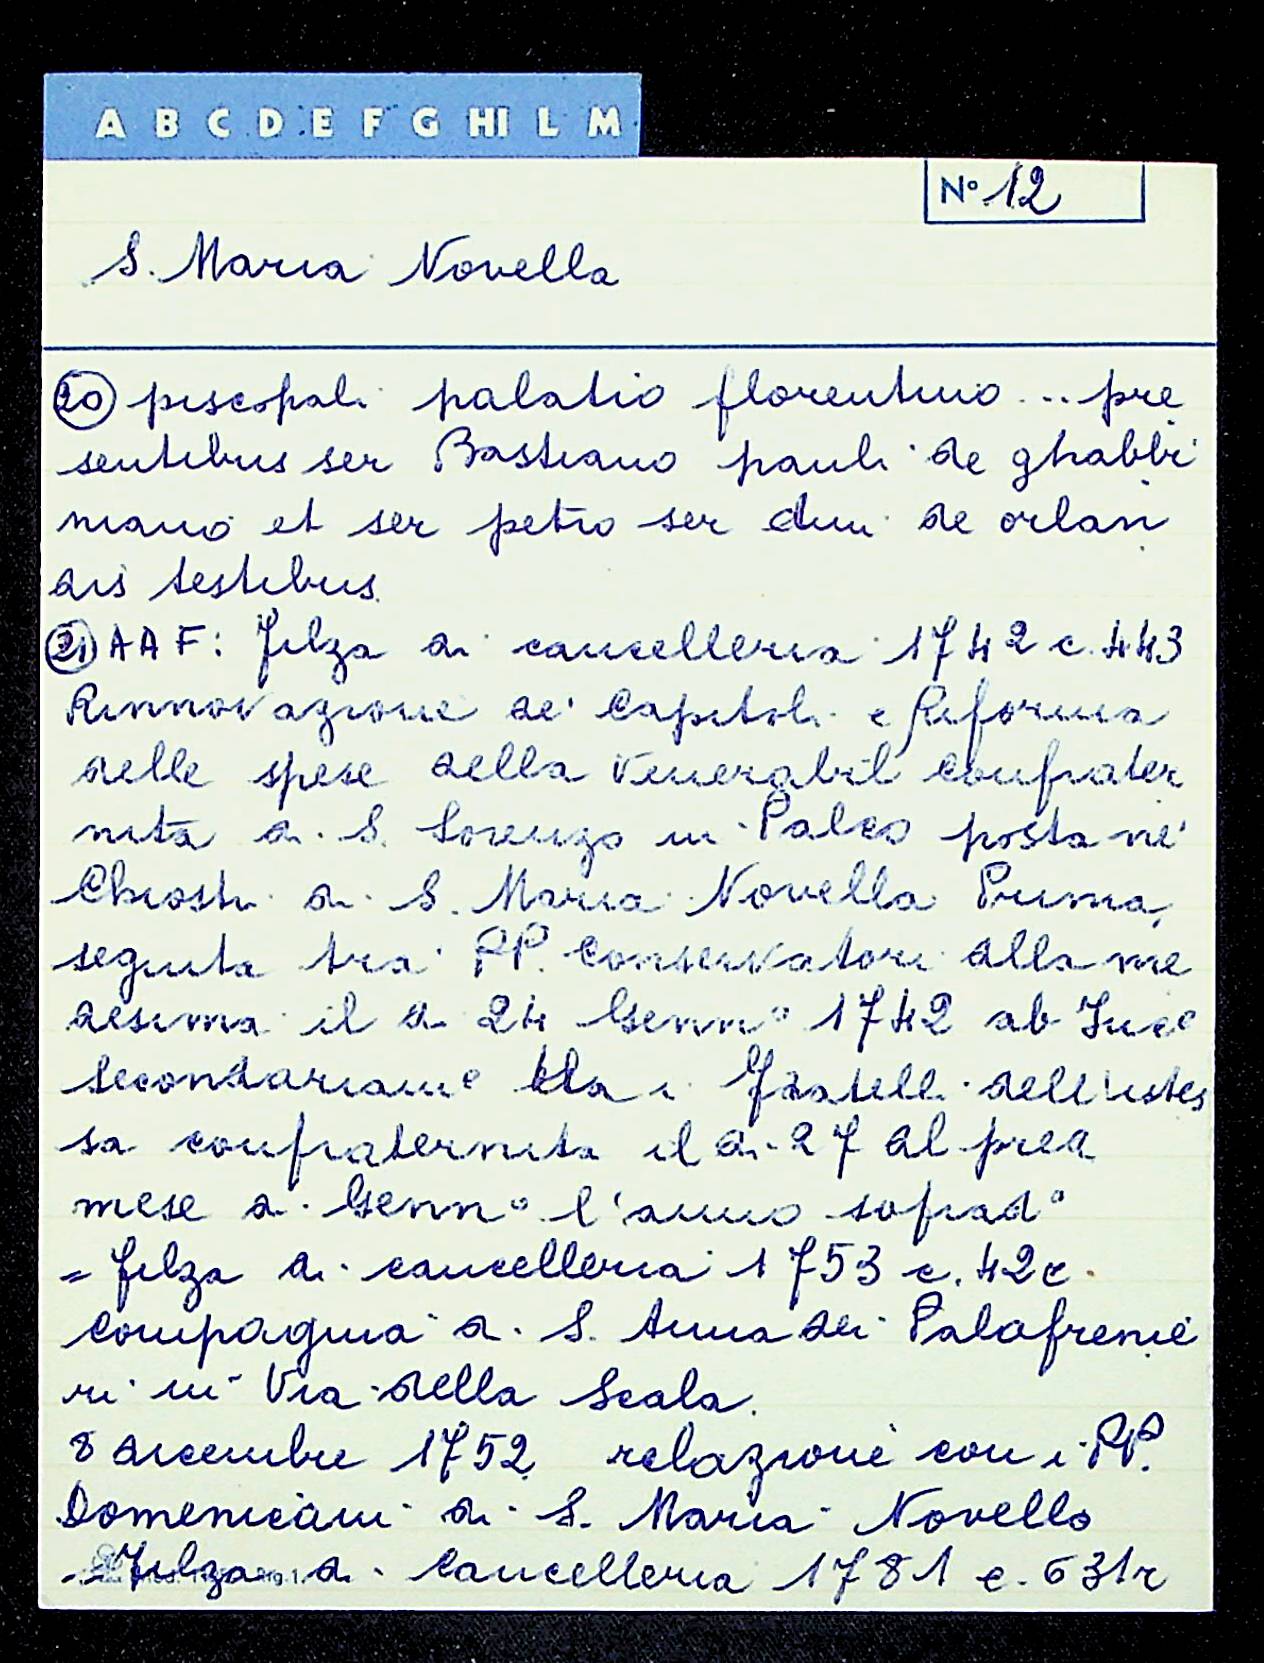 A B C D E F G HI L M
N° 12
S. Maria Novella
20 piscopali palatio florentino ... pre
sentibus ser Bastiano pauli de ghabbi
mano et ser petro ser dini de orlan
dis testibus
21 AAF: Filza di cancelleria 1742 c. 443
Rinnovazione de' Capitoli e Riforma
delle spese della Venerabil confrater
nità di S. Lorenzo in Palco posta ne'
Chiostri di S. Maria Novella Prima,
seguita tra' PP. conservatori alla me
desima il dì 24 Genn° 1742 ab Inc.e
secondariam.e tra i Fratelli dell'istes
sa confraternita il dì 27 del pred
mese di Genn° l'anno soprad°
= filza di cancelleria 1753 c. 42
compagnia di S. Anna dei Palafrenie
ri in Via della Scala.
8 dicembre 1752 relazione con i PP.
Domenicani di S. Maria Novella
= Filza di Cancelleria 1781 c. 631r